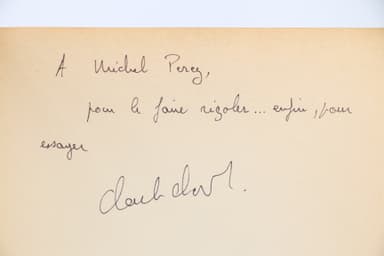 A Michel Perez,
pour le faire rigoler... enfin, pour
essayer